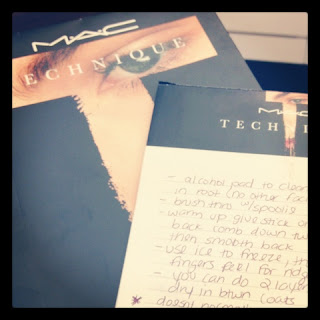 MAC
ECHNIQUE
MAC
TECHNI
- alcohol pad to clean
in root (no other fac
- brush thru w/spoolie
- warm up glue stick on
back comb down tw
then smooth back
- use ice to freeze, th
fingers feel for ridg
- you can do 2 layer
dry in btwn coats
* doesnt normal